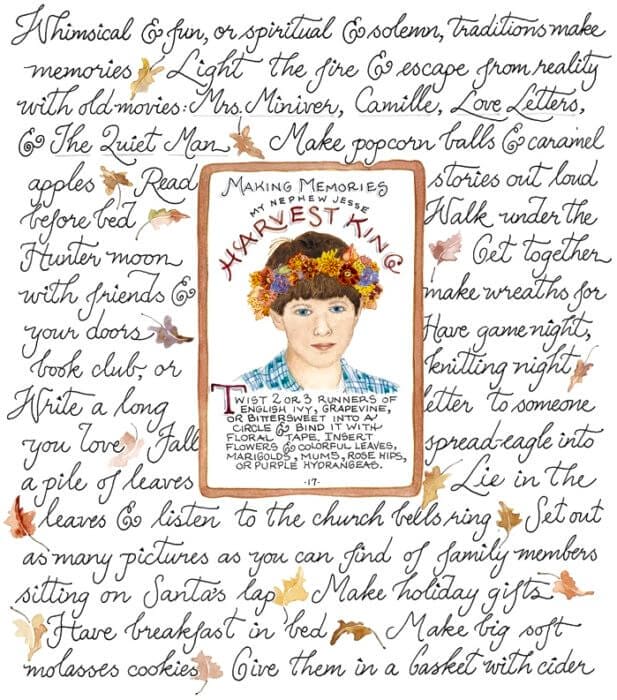 Whimsical & fun, or spiritual & solemn, traditions make
memories Light the fire & escape from reality
with old movies: Mrs. Miniver, Camille, Love Letters,
& The Quiet Man Make popcorn balls & caramel
apples Read stories out loud
before bed Walk under the
Hunter moon Get together
with friends & make wreaths for
your doors Have game night,
book club, or knitting night
Write a long letter to someone
you love Fall spread-eagle into
a pile of leaves Lie in the
leaves & listen to the church bells ring Set out
as many pictures as you can find of family members
sitting on Santa's lap Make holiday gifts
Have breakfast in bed Make big soft
molasses cookies Give them in a basket with cider
MAKING MEMORIES
MY NEPHEW JESSE
HARVEST KING
TWIST 2 OR 3 RUNNERS OF
ENGLISH IVY, GRAPEVINE,
OR BITTERSWEET INTO A
CIRCLE & BIND IT WITH
FLORAL TAPE. INSERT
FLOWERS & COLORFUL LEAVES,
MARIGOLDS, MUMS, ROSE HIPS,
OR PURPLE HYDRANGEAS.
-17-